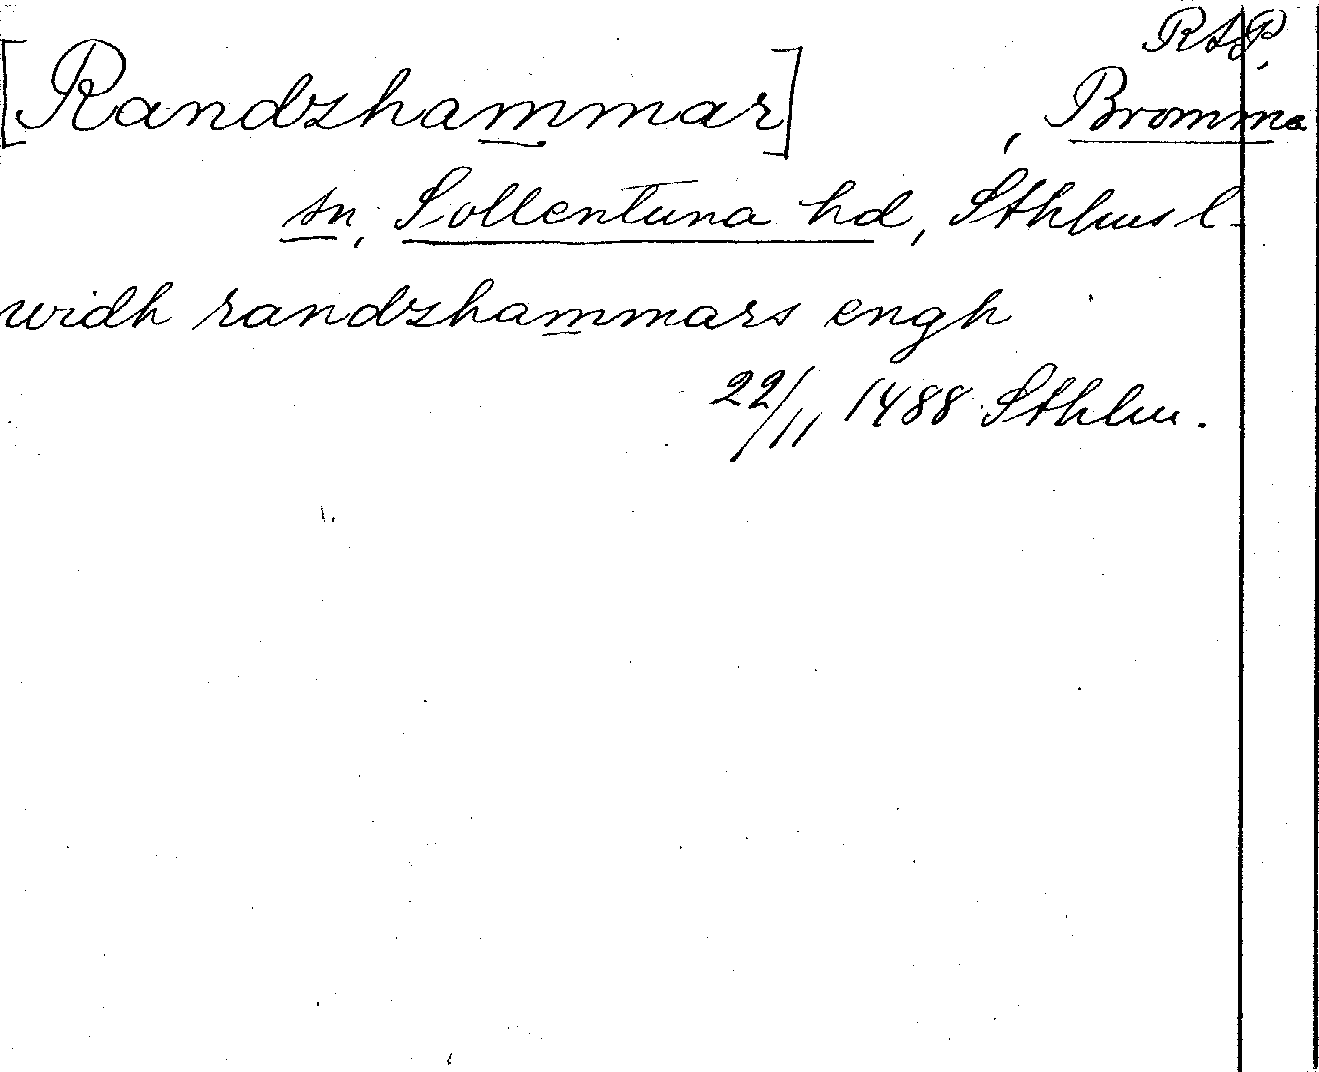 RAP.
[Randzhammar], Bromma
sn, Sollentuna hd, Sthlms l.
widh randzhammars engh
22/11 1488 Sthlm.